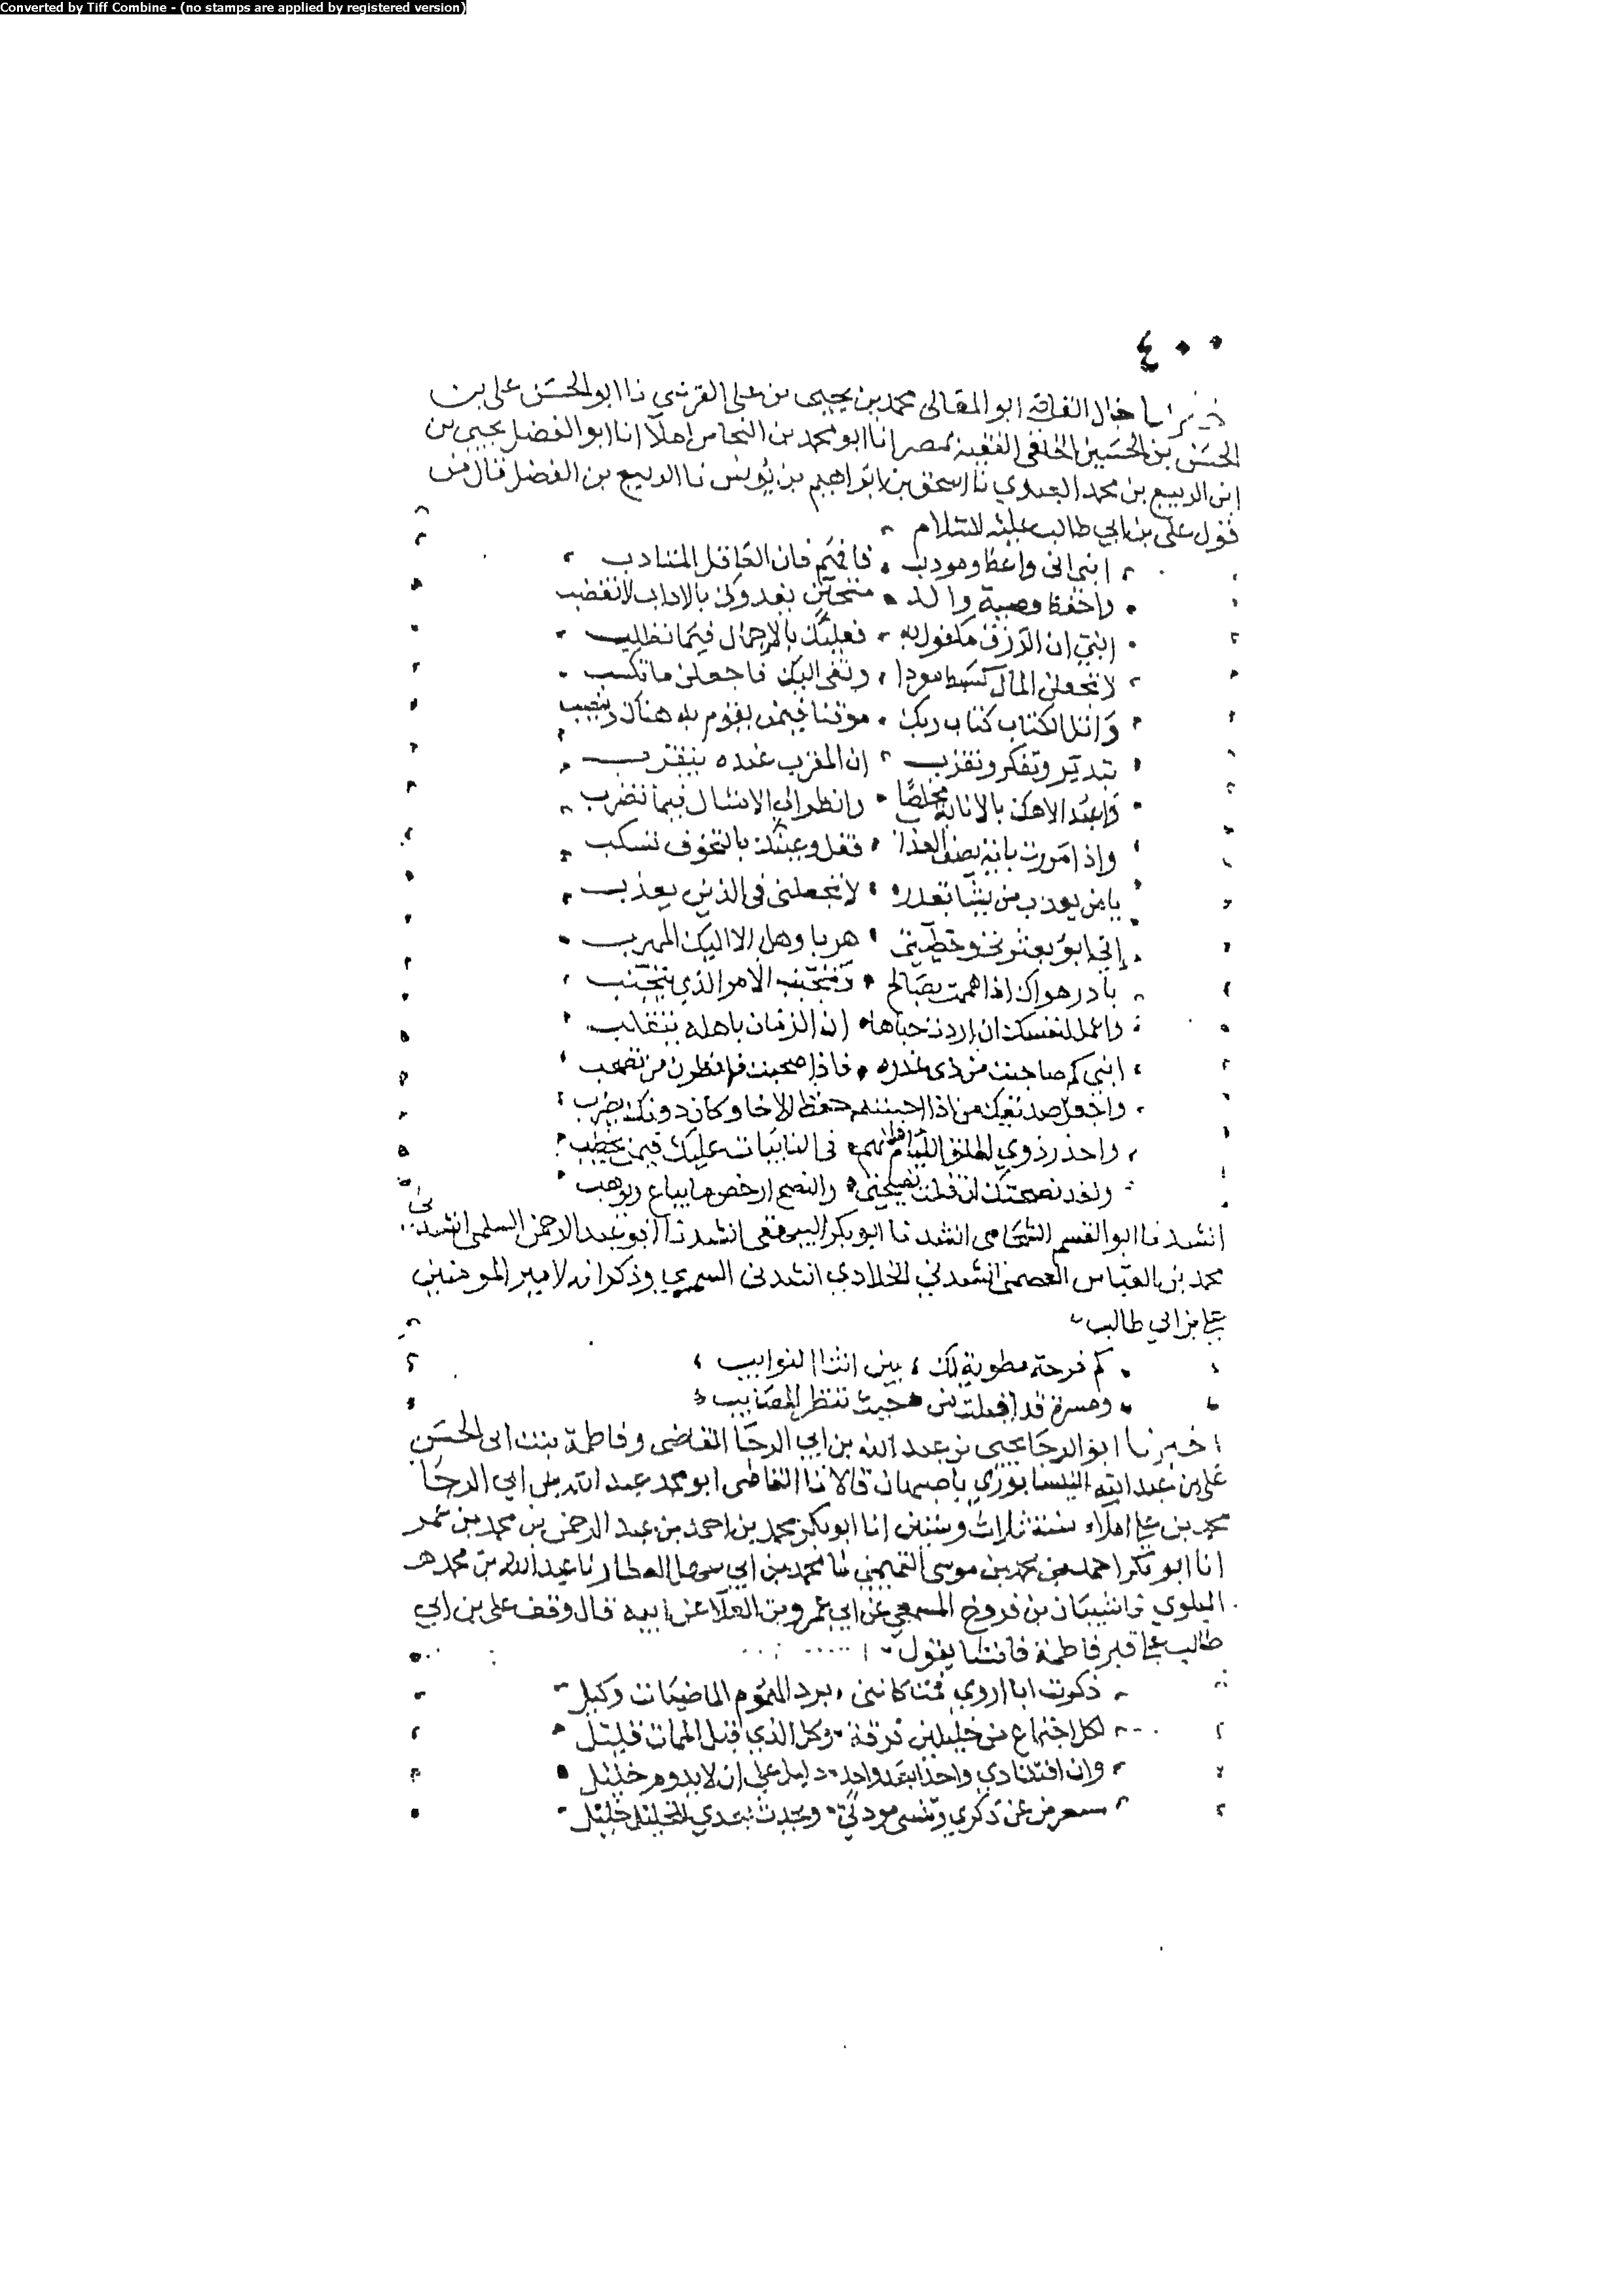 Converted by Tiff Combine - (no stamps are applied by registered version)
٤٠٠
خالي القاضي ابو المعالي محمد بن يحيى بن علي القرشي نا ابو الحسن علي بن
الحسن بن الحسين الخلعي الفقيه بمصر انا ابو محمد بن النحاس املا انا ابو الفضل يحيى بن
ابن الربيع بن محمد العبدي نا اسحق بن ابراهيم بن يونس نا الربيع بن الفضل قال من
قول علي بن ابي طالب عليه السلام
ابني اني واعظ ومودب فافهم فان العاقل المتادب
واحفظ وصية والد متحنن يغدوك بالاداب لا تغضب
ابني ان الرزق مكفول به فعليك بالاجمال فيما تطلب
لا تجعلن المال كسبك مفردا وتقى الهك فاجعلن ما تكسب
واتل الكتاب كتاب ربك موقنا فيمن يقوم به هناك وينصب
بتدبر وتفكر وتقرب ان المقرب عنده يتقرب
واعبد الاهك بالانابة مخلصا وانظر الى الامثال فيما تضرب
واذا مررت باية يصف العذاب فقل وعينك بالتخوف تسكب
يا من يعذب من يشا بعدله لا تجعلني في الذين يعذب
اني ابو بعثرتي وخطيتي هربا وهل الا اليك المهرب
بادر هواك اذا هممت بصالح وتجنب الامر الذي يتجنب
واعمل لنفسك ان اردت حباها ان الزمان باهله يتقلب
ابني كم صاحبت من ذي غدره فاذا صحبت فانظرن من تصحب
واجعل صديقك من اذا احببته حفظ الاخا وكان دونك يضرب
واحذر ذوي الملق اللئام فانهم في النايبات عليك فيمن يخطب
ولقد نصحتك ان قبلت نصيحتي والنصح ارخص ما يباع ويوهب
انشدنا ابو القسم الشحامي انشدنا ابو بكر البيهقي انشدنا ابو عبد الرحمن السلمي انشدني
محمد بن العباس العصمي انشدني الخلادي انشدني السمري وذكر انه لامير المومنين
علي بن ابي طالب
كم فرحة مطوية لك بين اثنا النوايب
ومسرة قد اقبلت من حيث تنتظر المصايب
اخبرنا ابو الرجا يحيى بن عبد الله بن ابي الرجا القاضي وفاطمة بنت ابي الحسن
علي بن عبد الله النيسابوري باصبهان قالا نا القاضي ابو محمد عبد الله بن ابي الرجا
محمد بن علي املاء سنة ثلاث وستين انا ابو بكر محمد بن احمد بن عبد الرحمن بن محمد بن عمر
انا ابو بكر احمد بن محمد بن موسى التميمي نا محمد بن ابي سهل العطار نا عبد الله بن محمد هو
البلوي نا شيبان بن فروخ المسمعي عن ابي عمرو بن العلا عن ابيه قال وقف علي بن ابي
طالب على قبر فاطمة فانشا يقول
ذكرت ابا اروى فبت كانني برد الهموم الماضيات وكيل
لكل اجتماع من خليلين فرقة وكل الذي قبل الممات قليل
وان افتقادي واحدا بعد واحد دليل على ان لا يدوم خليل
سيعرض عن ذكري وتنسى مودتي ويحدث بعدي للخليل خليل